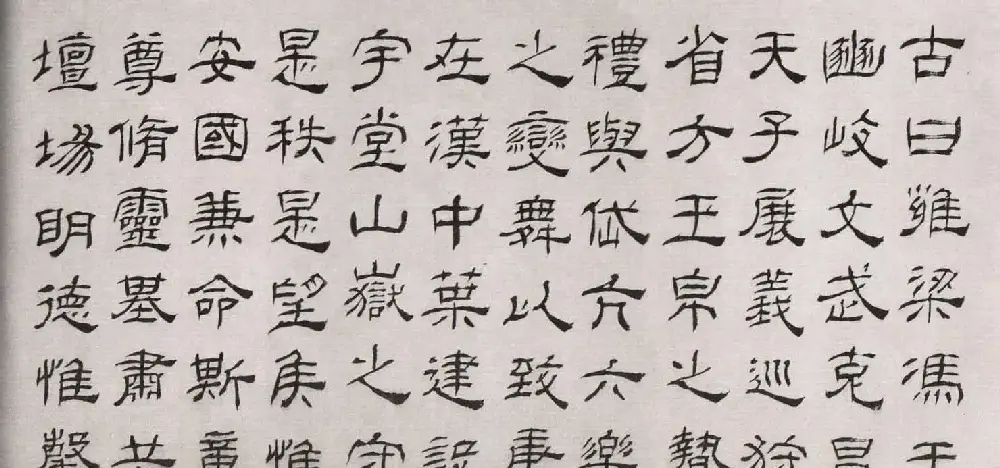 古曰雍梁馮于
豳岐文武克昌
天子展義巡狩
省方玉帛之贄
禮與岱亢六樂
之變舞以致康
在漢中葉建設
宇堂山嶽之守
是秩是望侯惟
安國兼命斯章
尊脩靈基肅共
壇場明德惟馨